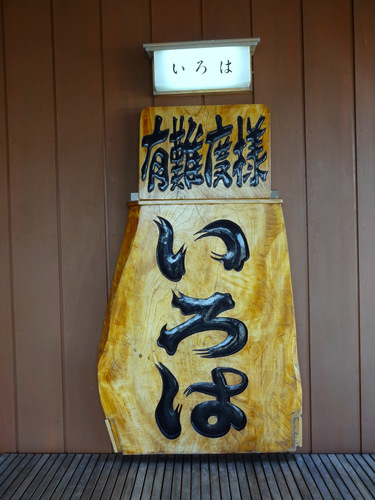 いろは
有難度様
いろは